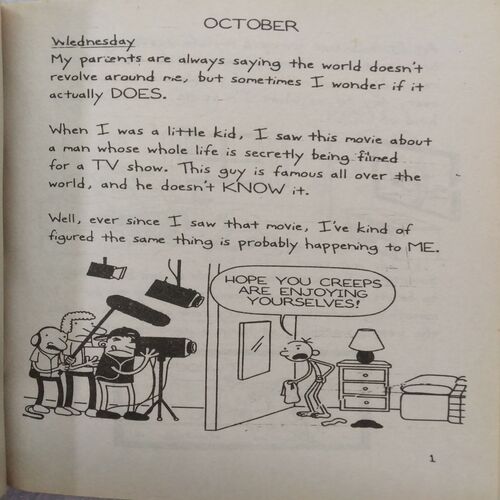 OCTOBER
Wednesday
My parents are always saying the world doesn't
revolve around me, but sometimes I wonder if it
actually DOES.
When I was a little kid, I saw this movie about
a man whose whole life is secretly being filmed
for a TV show. This guy is famous all over the
world, and he doesn't KNOW it.
Well, ever since I saw that movie, I've kind of
figured the same thing is probably happening to ME.
HOPE YOU CREEPS
ARE ENJOYING
YOURSELVES!
1